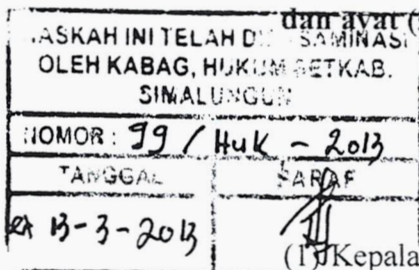 dan ayat (
NASKAH INI TELAH DI SAMINASI
OLEH KABAG, HUKUM SETKAB.
SIMALUNGUN
NOMOR : 99 / HuK - 2013
TANGGAL PARAF
13-3-2013
(1) Kepala